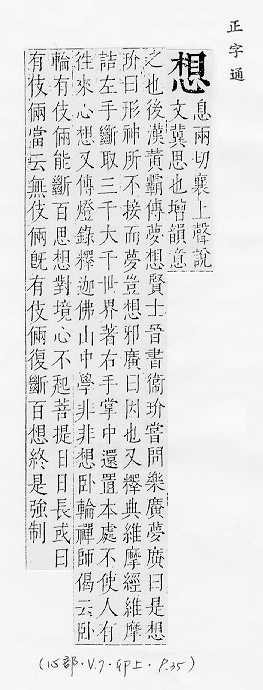 正字通
想
息兩切襄上聲說
文冀思也增韻意
之也後漢黃霸傳夢想賢士晉書衞玠嘗問樂廣夢廣曰是想
玠曰形神所不接而夢豈想邪廣曰因也又釋典維摩經維摩
詰左手斷取三千大千世界著右手掌中還置本處不使人有
徃來心想又傳燈錄釋迦佛山中學非非想卧輪禪師偈云卧
輪有伎倆能斷百思想對境心不起菩提日日長或曰
有伎倆當云無伎倆旣有伎倆復斷百想終是強制
(心部·V.7·卯上·P.35)